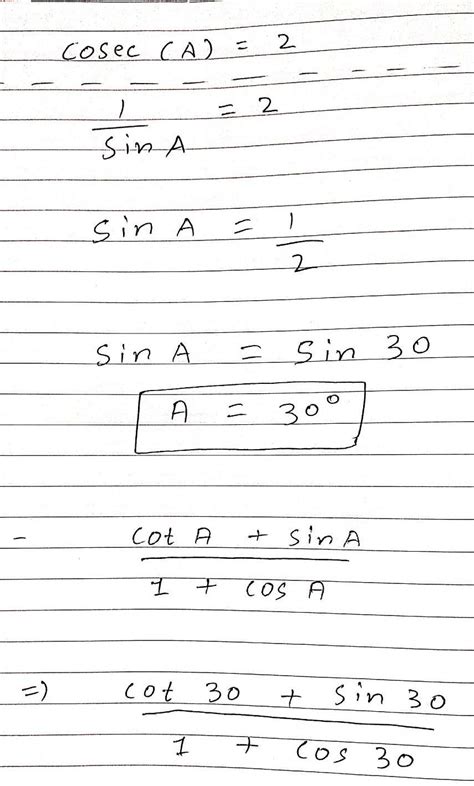 cosec (A) = 2
1/sin A = 2
sin A = 1/2
sin A = sin 30
A = 30°
- cot A + sin A / 1 + cos A
=) cot 30 + sin 30 / 1 + cos 30